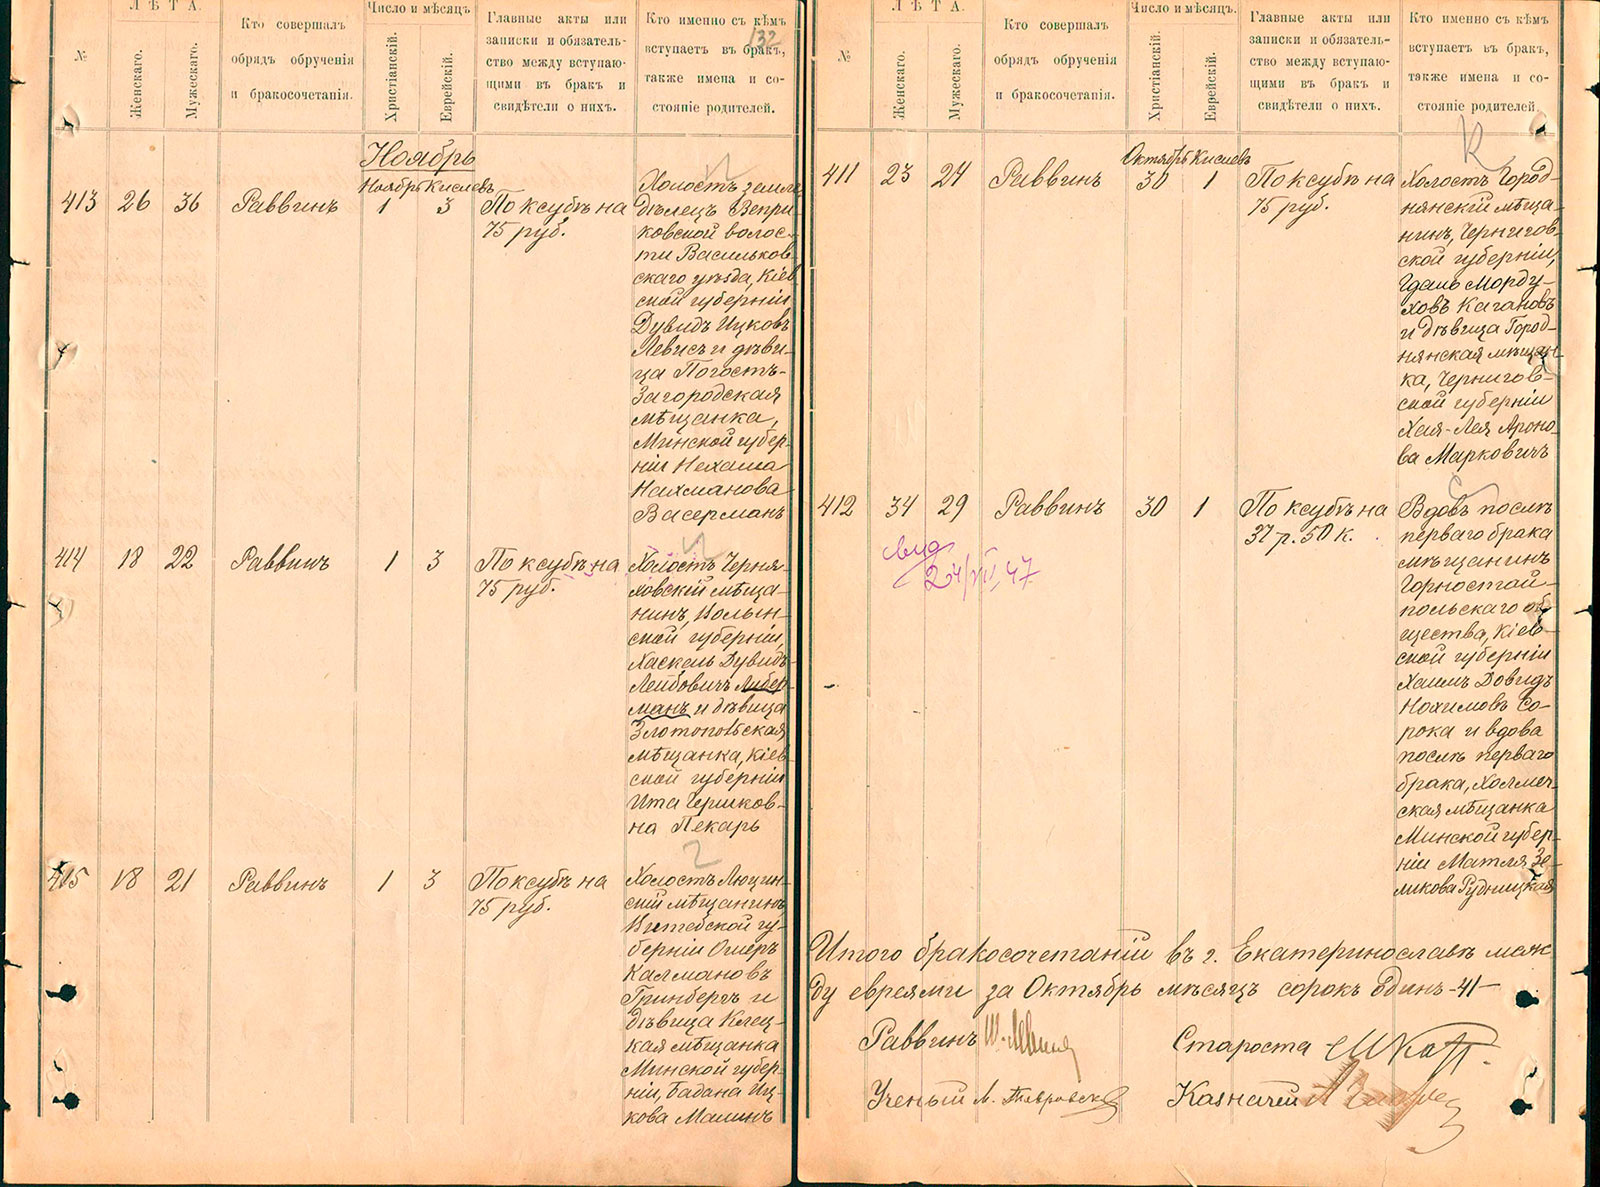 132
№
ЛѢТА.
Женскаго.
Мужескаго.
Кто совершалъ
обрядъ обрученія
и бракосочетанія.
Число и мѣсяцъ.
Христіанскій.
Еврейскій.
Главные акты или
записки и обязатель-
ство между вступаю-
щими въ бракъ и
свидѣтели о нихъ.
Кто именно съ кѣмъ
вступаетъ въ бракъ,
также имена и со-
стояніе родителей.
Ноябрь
Ноябрь Кислевъ
413 26 36 Раввинъ 1 3 По ксубѣ на
75 руб.
Холостъ земле-
дѣлецъ Вепри-
ковской волос-
ти Васильков-
скаго уѣзда, Кіев-
ской губерніи
Дувидъ Ицковъ
Левисъ и дѣви-
ца Погостъ-
Загородская
мѣщанка,
Минской губер-
ніи Нехама
Нахманова
Васерманъ
414 18 22 Раввинъ 1 3 По ксубѣ на
75 руб.
Холостъ Черня-
ховскій мѣща-
нинъ, Волын-
ской губерніи,
Хаскель Дувидъ-
Лейбовичъ Либер-
манъ и дѣвица
Златопольская
мѣщанка, Кіев-
ской губерніи
Ита Гершков-
на Пекарь
415 18 21 Раввинъ 1 3 По ксубѣ на
75 руб.
Холостъ Люцин-
скій мѣщанинъ,
Витебской гу-
берніи Ошеръ
Калмановъ
Гринбергъ и
дѣвица Клец-
кая мѣщанка
Минской губер-
ніи, Бадана Иц-
кова Малинъ
№
ЛѢТА.
Женскаго.
Мужескаго.
Кто совершалъ
обрядъ обрученія
и бракосочетанія.
Число и мѣсяцъ.
Христіанскій.
Еврейскій.
Главные акты или
записки и обязатель-
ство между вступаю-
щими въ бракъ и
свидѣтели о нихъ.
Кто именно съ кѣмъ
вступаетъ въ бракъ,
также имена и со-
стояніе родителей.
Октябрь Кислевъ
411 23 24 Раввинъ 30 1 По ксубѣ на
75 руб.
Холостъ Город-
нянскій мѣща-
нинъ, Чернигов-
ской губерніи,
Гдаль Морду-
ховъ Кагановъ
и дѣвица Город-
нянская мѣщан-
ка, Чернигов-
ской губерніи
Хая-Лея Ароно-
ва Марковичъ
412 34 29 Раввинъ 30 1 По ксубѣ на
37 р. 50 к.
24/VII, 47
Вдовъ послѣ
перваго брака
мѣщанинъ
Горностай-
польскаго об-
щества, Кіев-
ской губерніи
Хаимъ Довидъ
Нохимовъ Со-
рока и вдова
послѣ перваго
брака, Холмеч-
ская мѣщанка
Минской губер-
ніи Матля Зе-
ликова Рудницкая
Итого бракосочетаній въ г. Екатеринославѣ меж-
ду евреями за Октябрь мѣсяцъ сорокъ одинъ -41-
Раввинъ
Староста
Ученый
Казначей